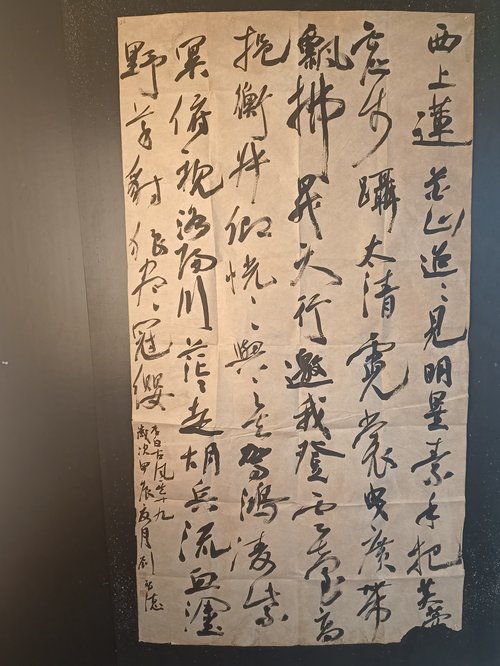 西上蓮花山迢〻見明星素手把芙蓉
虛步躡太清霓裳曳廣帶
飄拂昇天行邀我登雲臺高
揖衛叔卿恍〻與之去駕鴻凌紫
冥俯視洛陽川茫〻走胡兵流血塗
野草豺狼盡冠纓
李白古風其十九
歲次甲辰夏月劉志